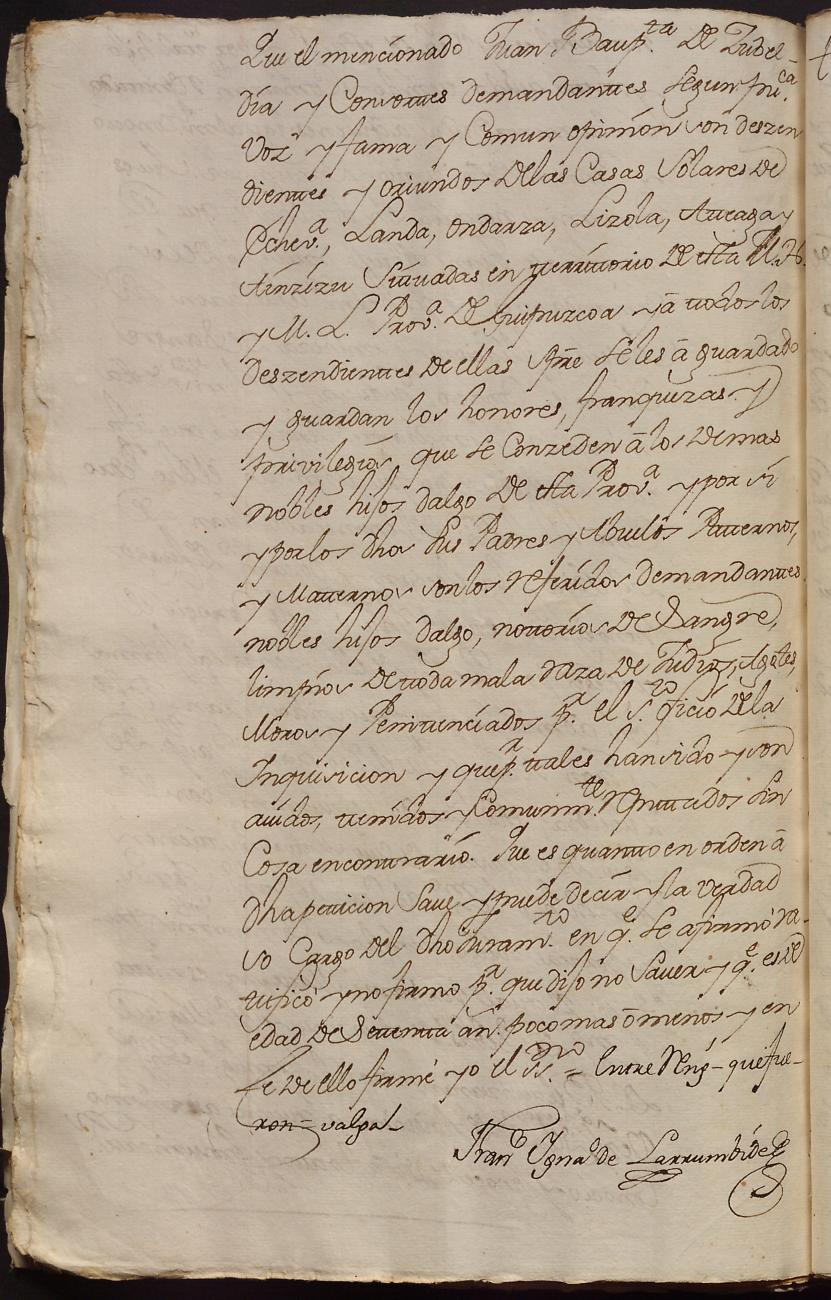 Que el mencionado Juan Baup.ta De Zubel-
día y Consortes demandantes segun pu.ca
Voz y fama y Comun opinión son deszen
dientes y oriundos Delas Casas Solares de
Echev.a, Landa, Ondarza, Lizola, Atteaga y
Ainzizu Situadas en territorio De esta M. N.
y M. L. Prov.a De Guipuzcoa y á todos los
deszendientes de ellas spre seles á guardado
y guardan los honores, franquezas y
privilegios que se Conzeden á los demas
nobles hijos dalgo De esta Prov.a y por si
y por los dhos sus Padres y Abuelos Paternos,
y Maternos son los referidos demandantes
nobles hijos dalgo, notorios de Sangre,
limpios de toda mala raza de Judios, Agotes,
Moros y Penitenciados p.r el s.to oficio dela
Inquisicion y que p.r tales han sido y son
auidos, tenidos y Comunm.te reputados sin
Cosa en contrario. Que es quanto en orden á
dha peticion Save y puede decir y la verdad
so Cargo del dho Juram.to en q.e se afirmó ra-
tificó y no firmo p.r que dijo no Saver y q.e es de
edad de Setenta añ. poco mas ó menos y en
fe de ello firmé yo el Ss.no = Entre Reng.s que fue-
ron = valga
Fran.co Igna.o de Larrumbide